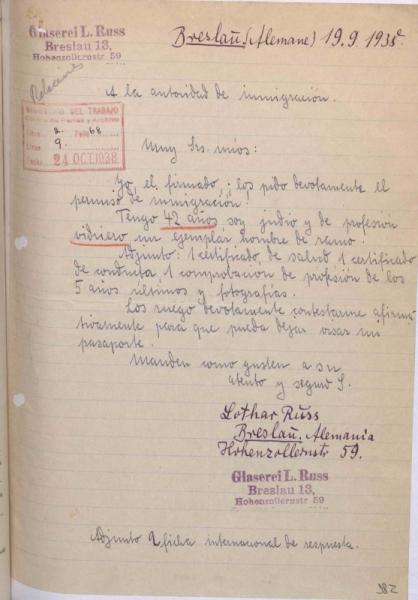 Glaserei L. Russ
Breslau 13,
Hohenzollernstr 59
Breslau (Alemane) 19.9.1938
Relaciones
A la autoridad de inmigración.
DEL TRABAJO
2. Folio 68
9.
24 OCT 1938
Muy Srs. mios:
Yo el firmado, ¡los pido devotamente el
permiso de inmigración!
Tengo 42 años soy judio y de profesión
vidriero un ejemplar hombre de ramo.
Adjunto: 1 certificado, de salud 1 certificado
de conducta 1 comprobacion de profesión de los
5 años últimos y fotografías.
Los ruego devotamente contestarme afirma-
tivamente para que pueda dejar visar mi
pasaporte.
Manden como gusten a su
atento y seguro S.
Lothar Russ
Breslau, Alemania
Hohenzollernstr 59.
Glaserei L. Russ
Breslau 13,
Hohenzollernstr 59
Adjunto 1 ficha internacional de respuesta.
382